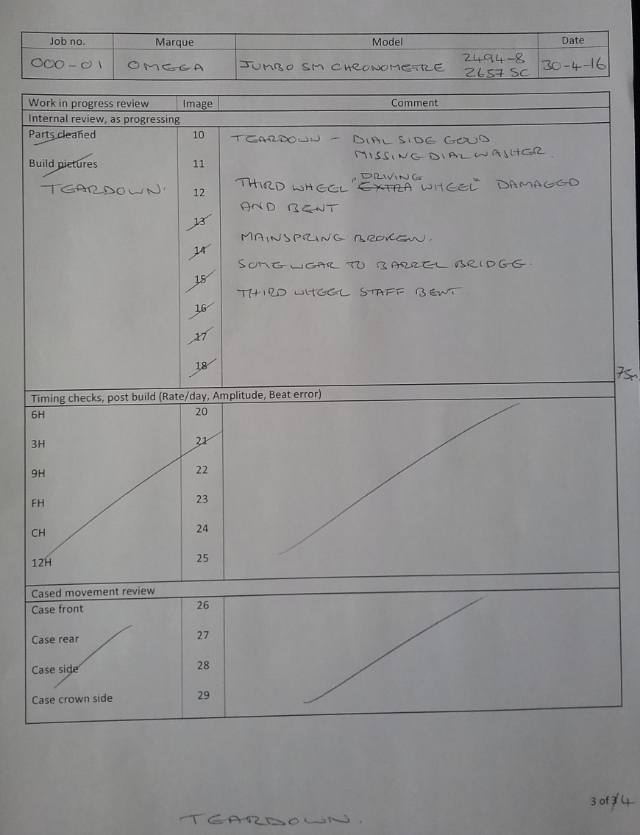 Job no. Marque Model Date
000-01 OMEGA JUMBO SM CHRONOMETRE 2494-8 30-4-16
2657 SC
Work in progress review Image Comment
Internal review, as progressing
Parts cleaned 10 TEARDOWN - DIAL SIDE GOOD
MISSING DIAL WASHER.
Build pictures 11
TEARDOWN. 12 THIRD WHEEL "DRIVING EXTRA WHEEL" DAMAGED
AND BENT
13
14 MAINSPRING BROKEN.
15 SOME WEAR TO BARREL BRIDGE.
16 THIRD WHEEL STAFF BENT.
17
18
Timing checks, post build (Rate/day, Amplitude, Beat error)
6H 20
3H 21
9H 22
FH 23
CH 24
12H 25
Cased movement review
Case front 26
Case rear 27
Case side 28
Case crown side 29
3 of 4
TEARDOWN.